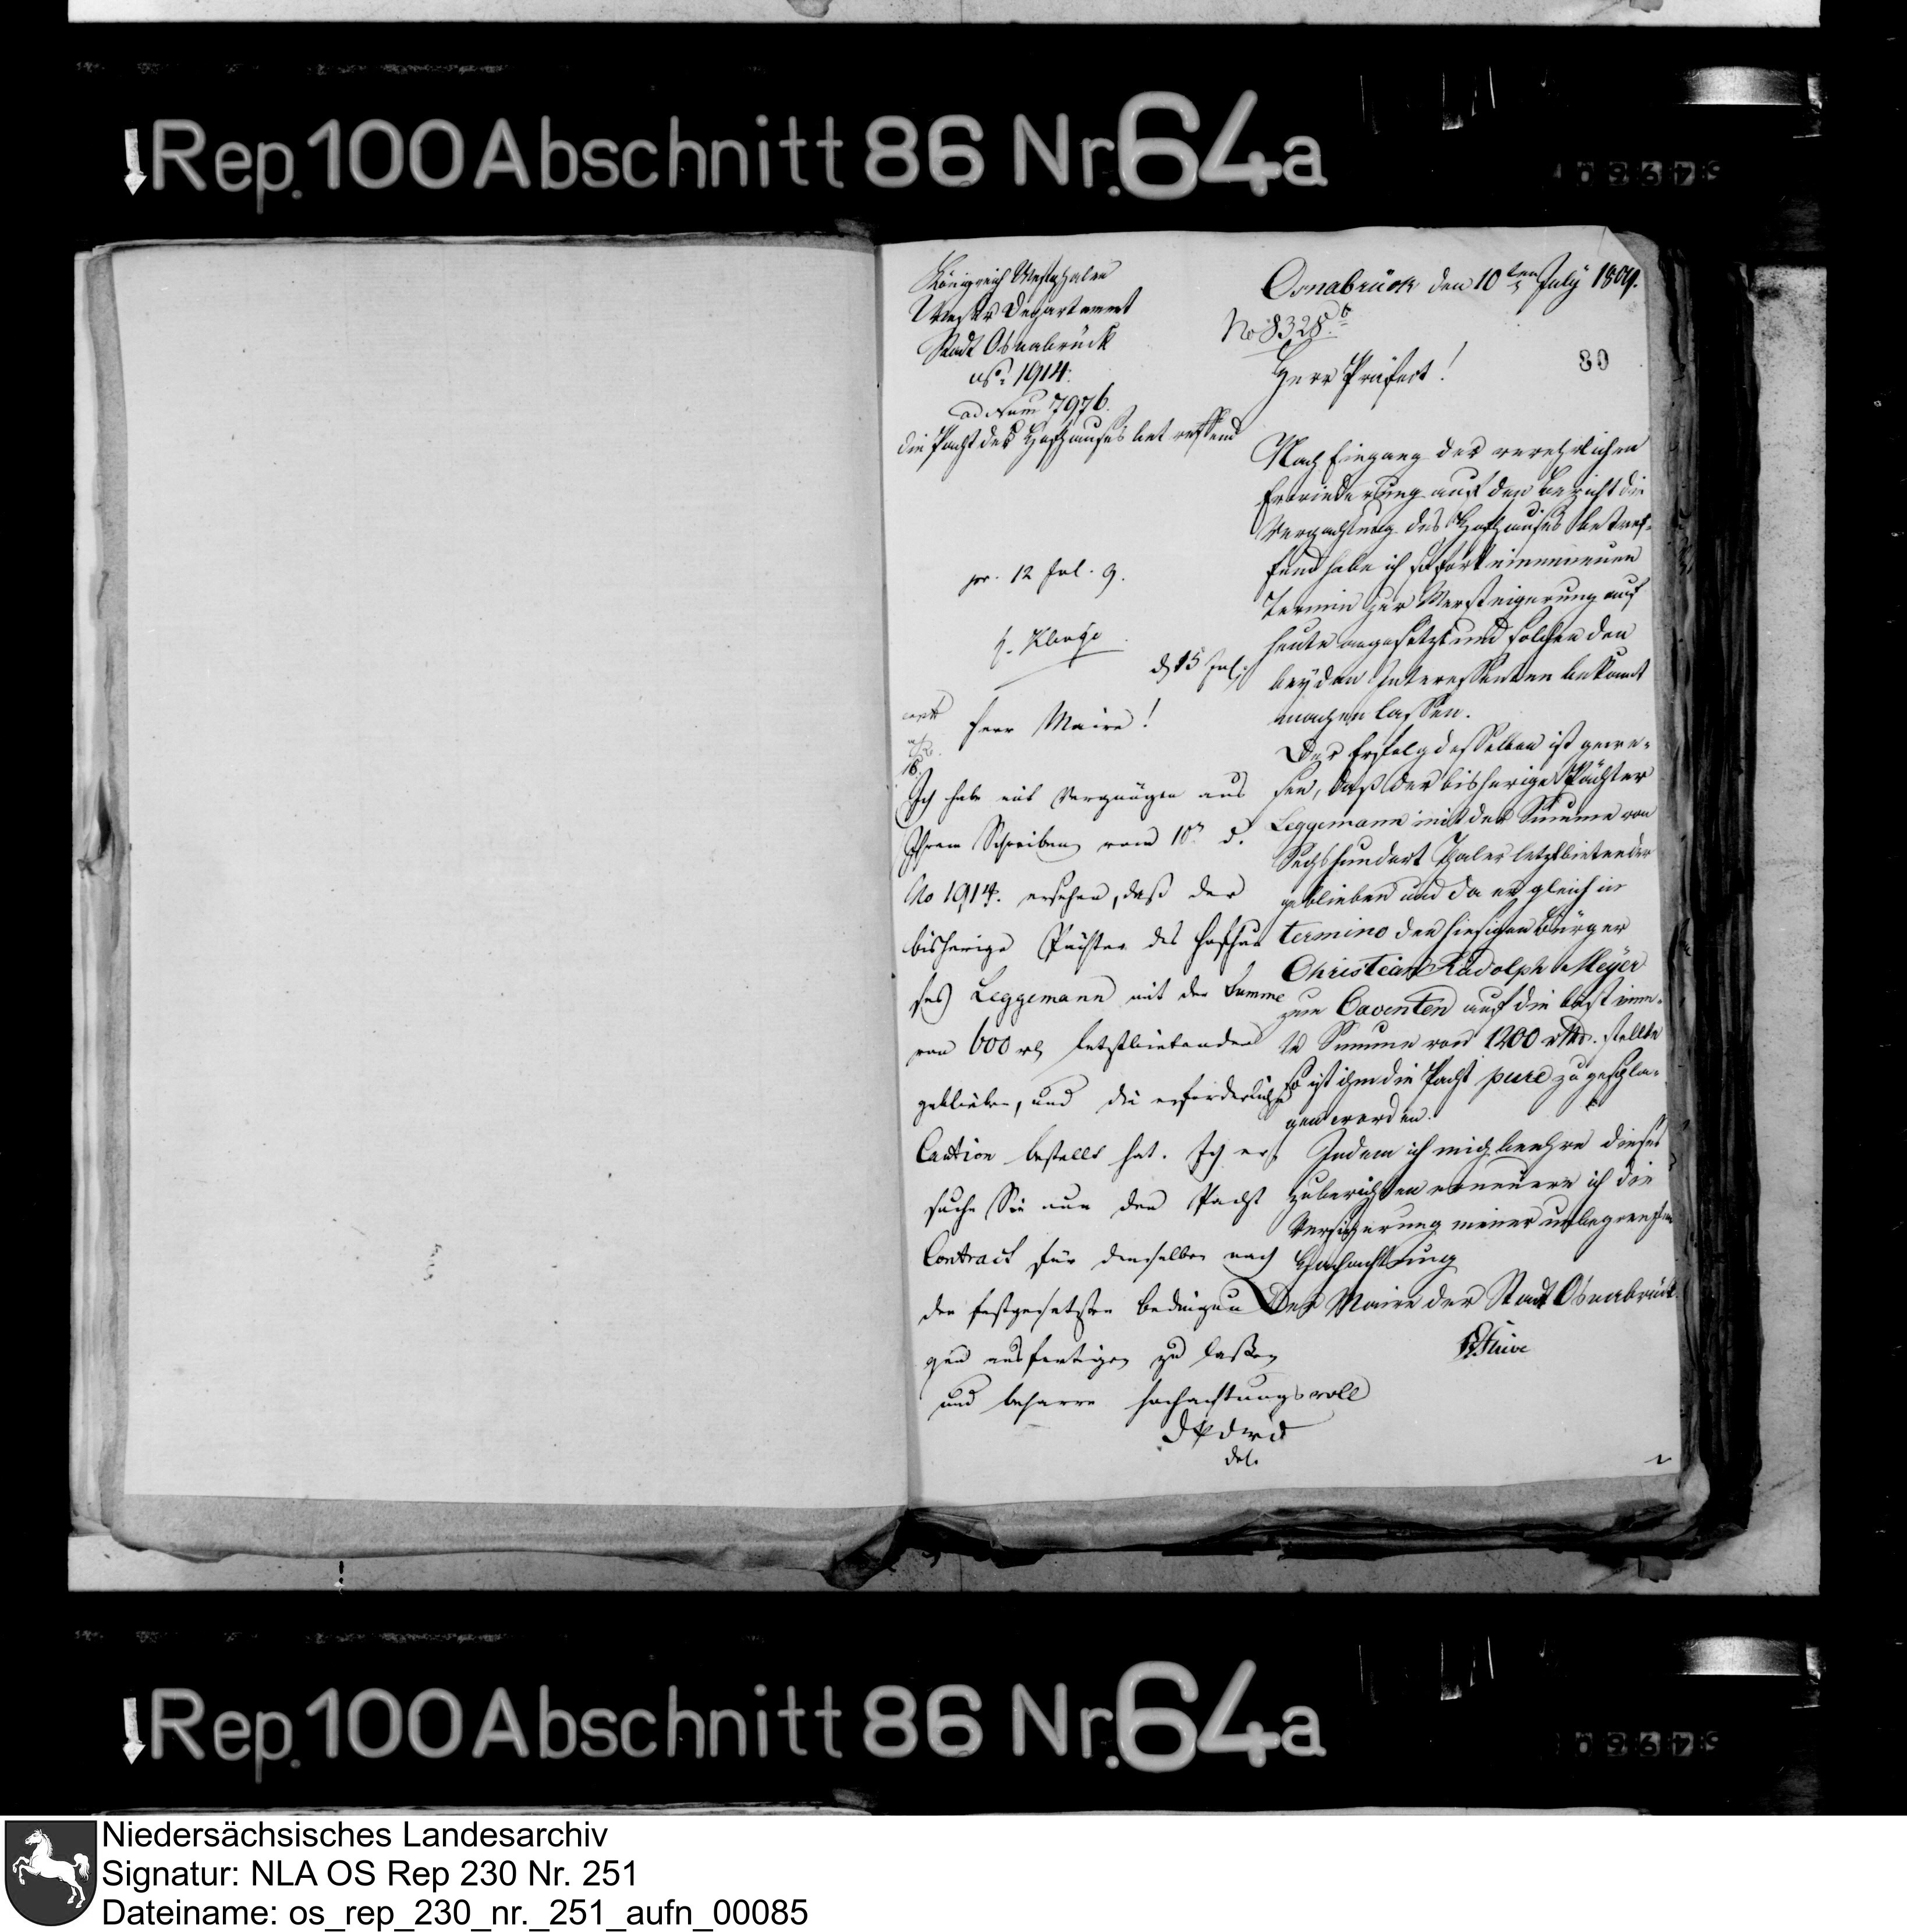 Rep. 100 Abschnitt 86 Nr. 64a
Königreich Westphalen
Weser Departement
Stadt Osnabrück
No. 1914.
ad Num 7976.
die Pacht des Hofhauses betreffend
pr. 12 Jul. 9.
d 15 Jul.
Herr Maire!
16.
Ich habe mit Vergnügen aus
Ihrem Schreiben vom 10n d.
No 1914. ersehen, daß der
bisherige Pächter des Hofhau
ses Leggemann mit der Summe
von 600 rh letztbietender
geblieben, und die erforderliche
Caution bestellt hat. Ich er-
suche Sie nun den Pacht
Contract für denselben nach
den festgesetzten bedingun
gen ausfertigen zu laßen
und beharre hochachtungsvoll
Osnabrück den 10ten July 1809.
No 8328.
80
Herr Präfect!
Nach Eingang der verehrlichen
Erwiederung auf den Bericht die
Verpachtung des Hofhauses betref-
fend habe ich sofort einen neuen
Termin zur Versteigerung auf
heute angesetzt und solchen den
beyden Interessenten bekannt
machen lassen.
Der Erfolg desselben ist gewe-
sen, daß der bisherige Pächter
Leggemann mit der Summe von
Sechshundert Thaler letztbietender
geblieben und da er gleich in
termino den hiesigen Bürger
Christian Rudolph Meyer
zum Caventen auf die bestimm-
te Summe von 1200 rthr. stellte
so ist ihm die Pacht pure zugeschla-
gen worden.
Indem ich mich beehre dieses
zu berichten erneuere ich die
Versicherung meiner unbegrenzten
Hochachtung
Der Maire der Stadt Osnabrück.
Stüve
Rep. 100 Abschnitt 86 Nr. 64a
Niedersächsisches Landesarchiv
Signatur: NLA OS Rep 230 Nr. 251
Dateiname: os_rep_230_nr._251_aufn_00085